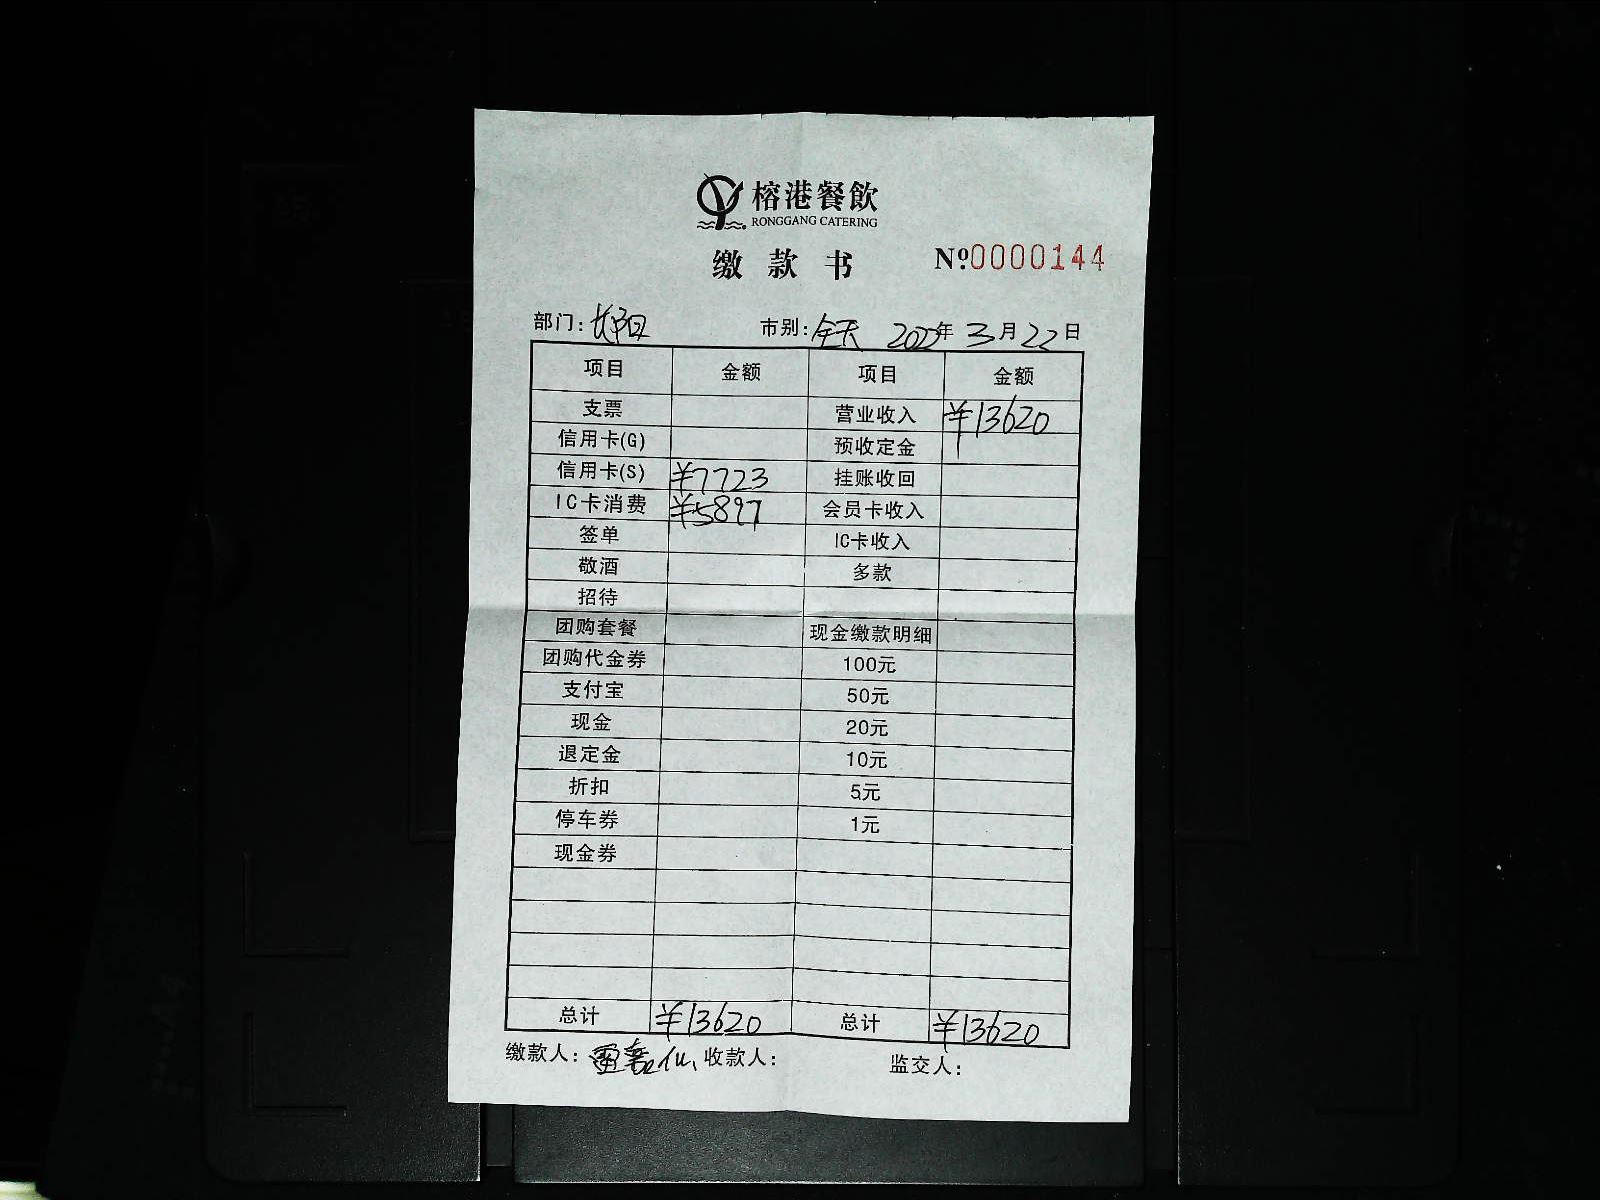 榕港餐飲
RONGGANG CATERING
缴款书 №0000144
部门: 市别:全天 2022年3月22日
项目 金额 项目 金额
支票 营业收入 ¥13620
信用卡(G) 预收定金
信用卡(S) ¥7723 挂账收回
IC卡消费 ¥5897 会员卡收入
签单 IC卡收入
敬酒 多款
招待
团购套餐 现金缴款明细
团购代金券 100元
支付宝 50元
现金 20元
退定金 10元
折扣 5元
停车券 1元
现金券
总计 ¥13620 总计 ¥13620
缴款人: 收款人: 监交人: